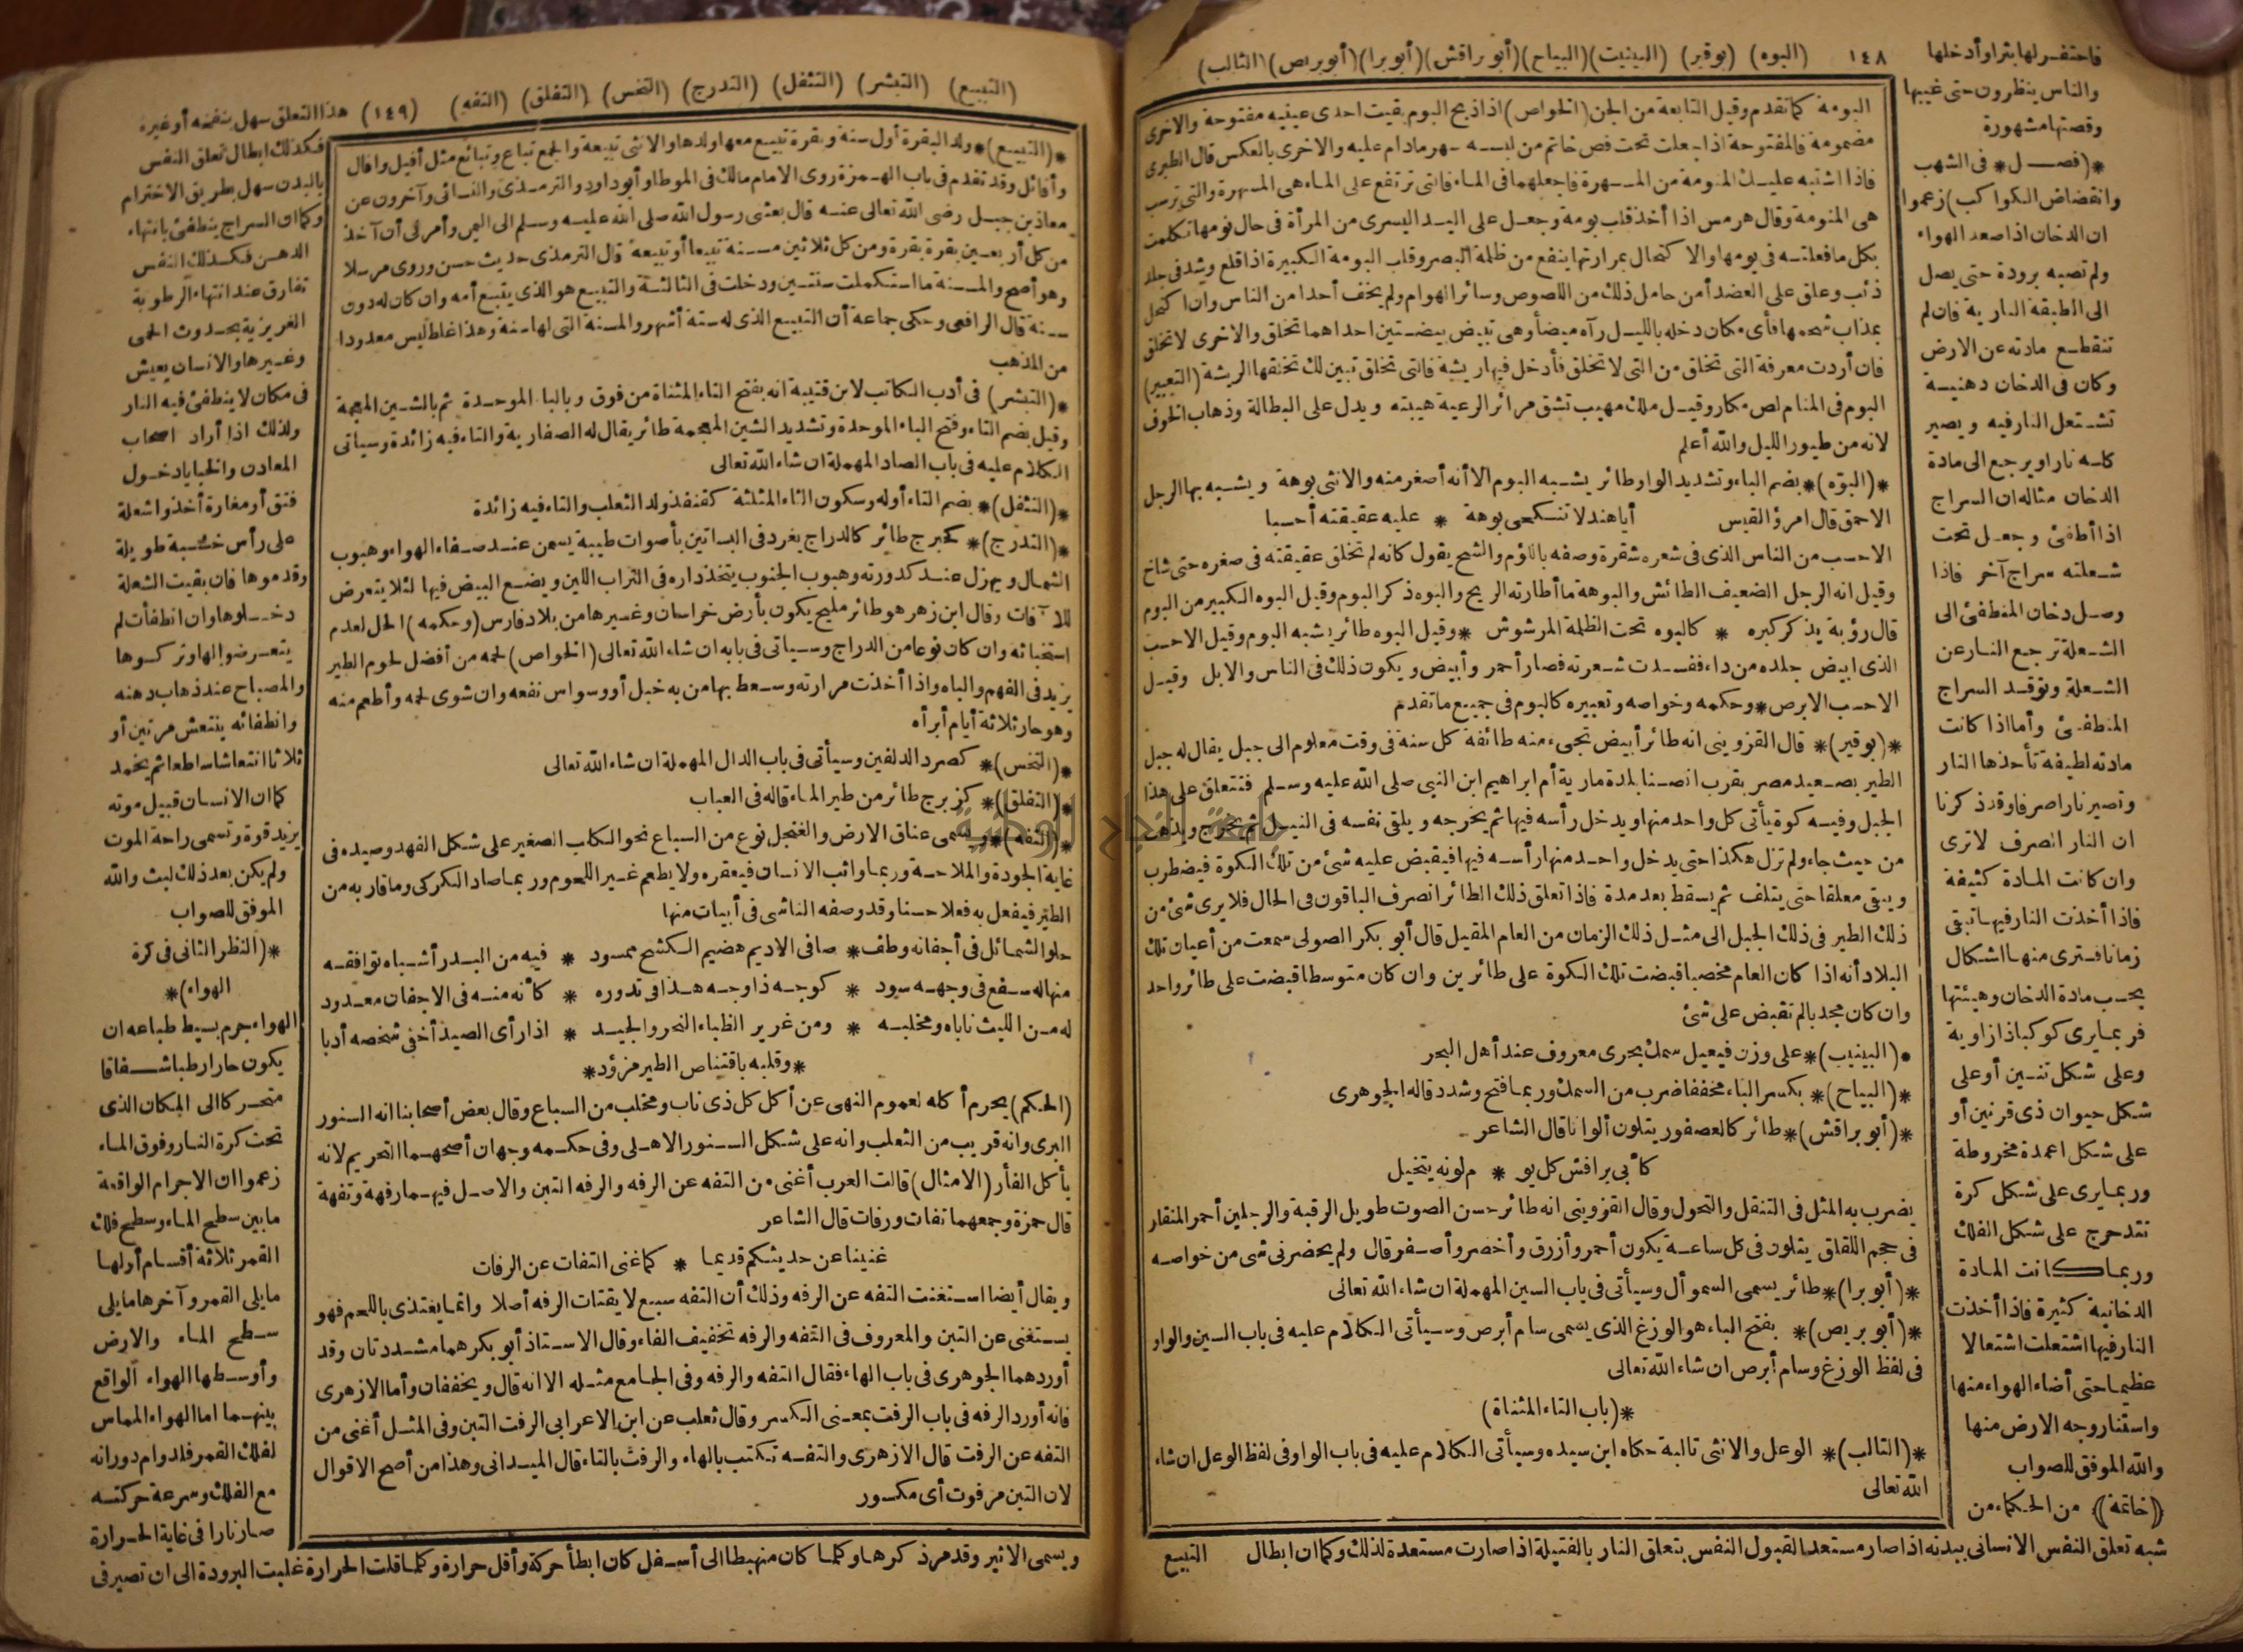 ١٤٨ (البوه) (بوقير) (البينيت) (البياح) (أبو براقش) (أبو برا) (أبو بريص) (التالب)
البومة كما تقدم وقيل التابعة من الجن (الخواص) اذا ذبح البوم بقيت احدى عينيه مفتوحة والاخرى
مضمومة فالمفتوحة اذا جعلت تحت فص خاتم من لبسه سهر مادام عليه والاخرى بالعكس قال الطبرى
فاذا اشتبه عليك المنومة من المسهرة فاجعلهما فى الماء فالتى ترتفع على الماء هى المسهرة والتى ترسب
هى المنومة وقال هرمس اذا أخذ قلب بومة وجعل على اليد اليسرى من المرأة فى حال نومها تكلمت
بكل ما فعلته فى يومها والا كتحال بمرارتها ينفع من ظلمة البصر وقلب البومة الكبيرة اذا قلع وشد فى جلد
ذئب وعلق على العضد أمن حامل ذلك من اللصوص وسائر الهوام ولم يخف أحدا من الناس وان اكتحل
بمذاب شحمها فأى مكان دخله بالليل رآه مضيأ وهى تبيض بيضتين احداهما تخلق والاخرى لا تخلق
فان أردت معرفة التى تخلق من التى لا تخلق فأدخل فيها ريشة فالتى تخلق تبين لك تخلقها الريشة (التعبير)
البوم فى المنام لص مكار وقيل ملك مهيب تشق مرائر الرعية هيبته ويدل على البطالة وذهاب الخوف
لانه من طيور الليل والله أعلم
*(البوّه)* بضم الباء وتشديد الواو طائر يشبه البوم الا أنه أصغر منه والانثى بوهة ويشبه بها الرجل
الاحمق قال امرؤ القيس أيا هند لا تنكحى بوهة * عليه عقيقته أحسبا
الاحسب من الناس الذى فى شعره شقرة وصفه باللؤم والشح يقول كانه لم تحلق عقيقته فى صغره حتى شاخ
وقيل انه الرجل الضعيف الطائش والبوهة ما أطارته الريح والبوه ذكر البوم وقيل البوه الكبير من البوم
قال رؤبة يذكر كبره * كالبوه تحت الظلة المرشوش * وقيل البوه طائر يشبه البوم وقيل الاحسب
الذى ابيض جلده من داء ففسدت شعرته فصار أحمر وأبيض ويكون ذلك فى الناس والابل وقيل
الاحسب الابرص * وحكمه وخواصه وتعبيره كالبوم فى جميع ما تقدم
*(بوقير)* قال القزوينى انه طائر أبيض تجىء منه طائفة كل سنة فى وقت معلوم الى جبل يقال له جبل
الطير بصعيد مصر بقرب انصنا بلدة مارية أم ابراهيم ابن النبى صلى الله عليه وسلم فتتعلق على هذا
الجبل وفيه كوة يأتى كل واحد منها ويدخل رأسه فيها ثم يخرجه ويلقى نفسه فى النيل ثم يخرج ويذهب
من حيث جاء ولم تزل هكذا حتى يدخل واحد منها رأسه فيها فيقبض عليه شئ من تلك الكوة فيضطرب
ويبقى معلقا حتى يتلف ثم يسقط بعد مدة فاذا تعلق ذلك الطائر انصرف الباقون فى الحال فلا يرى شئ من
ذلك الطير فى ذلك الجبل الى مثل ذلك الزمان من العام المقبل قال أبو بكر الصولى سمعت من أعيان تلك
البلاد أنه اذا كان العام مخصبا قبضت تلك الكوة على طائرين وان كان متوسطا قبضت على طائر واحد
وان كان مجدبا لم تقبض على شئ
*(البينيب)* على وزن فيعيل سمك بحرى معروف عند أهل البحر
*(البياح)* بكسر الباء مخففا ضرب من السمك وربما فتح وشدد قاله الجوهرى
*(أبو براقش)* طائر كالعصفور يتلون ألوانا قال الشاعر
كأبى براقش كل يو * م لونه يتخيل
يضرب به المثل فى التنقل والتحول وقال القزوينى انه طائر حسن الصوت طويل الرقبة والرجلين أحمر المنقار
فى حجم اللقلق يتلون فى كل ساعة يكون أحمر وأزرق وأخضر وأصفر قال ولم يحضرنى شئ من خواصه
*(أبو برا)* طائر يسمى السموأل وسيأتى فى باب السين المهملة ان شاء الله تعالى
*(أبو بريص)* بفتح الباء هو الوزغ الذى يسمى سام أبرص وسيأتى الكلام عليه فى باب السين والواو
فى لفظ الوزغ وسام أبرص ان شاء الله تعالى
*(باب التاء المثناة)
*(التالب)* الوعل والانثى تالبة حكاه ابن سيده وسيأتى الكلام عليه فى باب الواو فى لفظ الوعل ان شاء
الله تعالى
فاحتفر لها بئرا وأدخلها
والناس ينظرون حتى غيبها
وقصتها مشهورة
*(فصل* فى الشهب
وانقضاض الكواكب) زعموا
ان الدخان اذا صعد الهواء
ولم تصبه برودة حتى يصل
الى الطبقة النارية فان لم
تنقطع مادته عن الارض
وكان فى الدخان دهنية
تشتعل النار فيه ويصير
كله نارا ويرجع الى مادة
الدخان مثاله ان السراج
اذا أطفئ وجعل تحت
شعلته سراج آخر فاذا
وصل دخان المنطفئ الى
الشعلة ترجع النار عن
الشعلة وتوقد السراج
المنطفئ وأما اذا كانت
مادته لطيفة تأخذها النار
وتصير نارا صرفا وقد ذكرنا
ان النار الصرف لا ترى
وان كانت المادة كثيفة
فاذا أخذت النار فيها تبقى
زمانا فترى منها اشكال
بحسب مادة الدخان وهيئتها
فربما يرى كوكبا ذا زاوية
وعلى شكل تنين أو على
شكل حيوان ذى قرنين أو
على شكل اعمدة مخروطة
وربما يرى على شكل كرة
تتدحرج على شكل الفلك
وربما كانت المادة
الدخانية كثيرة فاذا أخذت
النار فيها اشتعلت اشتعالا
عظيما حتى أضاء الهواء منها
واستنار وجه الارض منها
والله الموفق للصواب
((خاتمة)) من الحكماء من
شبه تعلق النفس الانسانى ببدنه اذا صار مستعدا لقبول النفس بتعلق النار بالفتيلة اذا صارت مستعدة لذلك وكما ان ابطال
التبيع
(التبيع) (التبشر) (التتفل) (التدرج) (التخس) (التفلق) (التفه) (١٤٩)
*(التبيع)* ولد البقرة أول سنة وبقرة تبيع معها ولدها والانثى تبيعة والجمع تباع وتبائع مثل أفيل وافال
وأفائل وقد تقدم فى باب الهمزة روى الامام مالك فى الموطا وأبو داود والترمذى والنسائى وآخرون عن
معاذ بن جبل رضى الله تعالى عنه قال بعثنى رسول الله صلى الله عليه وسلم الى اليمن وأمرنى أن آخذ
من كل أربعين بقرة بقرة ومن كل ثلاثين مسنة تبيعا أو تبيعة قال الترمذى حديث حسن وروى مرسلا
وهو أصح والمسنة ما استكملت سنتين ودخلت فى الثالثة والتبيع هو الذى يتبع أمه وان كان له دون
سنة قال الرافعى وحكى جماعة أن التبيع الذى له ستة أشهر والمسنة التى لها سنة وهذا غلط ليس معدودا
من المذهب
*(التبشر) فى أدب الكاتب لابن قتيبة انه بفتح التاء المثناة من فوق وبالباء الموحدة ثم بالشين المعجمة
وقيل بضم التاء وفتح الباء الموحدة وتشديد الشين المعجمة طائر يقال له الصفارية والتاء فيه زائدة وسيأتى
الكلام عليه فى باب الصاد المهملة ان شاء الله تعالى
*(التتفل)* بضم التاء أوله وسكون الثاء المثلثة كقنفذ ولد الثعلب والتاء فيه زائدة
*(التدرج)* كحبرج طائر كالدراج يغرد فى البساتين بأصوات طيبة يسمن عند صفاء الهواء وهبوب
الشمال ويهزل عند كدورته وهبوب الجنوب يتخذ داره فى التراب اللين ويضع البيض فيها لئلا يتعرض
للآفات وقال ابن زهر هو طائر مليح يكون بأرض خراسان وغيرها من بلاد فارس (وحكمه) الحل لعدم
استخباثه وان كان نوعا من الدراج وسيأتى فى بابه ان شاء الله تعالى (الخواص) لحمه من أفضل لحوم الطير
يزيد فى الفهم والباه واذا أخذت مرارته وسعط بها من به خبل أو وسواس نفعه وان شوى لحمه وأطعم منه
وهو حار ثلاثة أيام أبرأه
*(التخس)* كصرد الدلفين وسيأتى فى باب الدال المهملة ان شاء الله تعالى
*(التفلق)* كزبرج طائر من طير الماء قاله فى العباب
*(التفه)* ويسمى عناق الارض والغنجل نوع من السباع نحو الكلب الصغير على شكل الفهد وصيده فى
غاية الجودة والملاحة وربما واثب الانسان فيعقره ولا يطعم غير اللحوم وربما صاد الكركى وما قاربه من
الطير فيفعل به فعلا حسنا وقد وصفه الناشى فى أبيات منها
حلو الشمائل فى أجفانه وطف * صافى الاديم هضيم الكشح ممسود * فيه من البدر أشباه توافقه
منها له سفع فى وجهه سود * كوجه ذا وجه هذا فى تدوره * كأنه منه فى الاجفان معدود
له من الليث ناباه ومخلبه * ومن غرير الظباء النحر والجيد * اذا رأى الصيد أخفى شخصه أدبا
*وقلبه باقتناص الطير مزؤد*
(الحكم) يحرم أكله لعموم النهى عن أكل كل ذى ناب ومخلب من السباع وقال بعض أصحابنا انه السنور
البرى وانه قريب من الثعلب وانه على شكل السنور الاهلى وفى حكمه وجهان أصحهما التحريم لانه
يأكل الفأر (الامثال) قالت العرب أغنى من التفه عن الرفه والرفه التبن والاصل فيهما رفهة وتفهة
قال حمزة وجمعهما تفات ورفات قال الشاعر
غنينا عن حديثكم قديما * كما غنى التفات عن الرفات
ويقال أيضا استغنت التفه عن الرفه وذلك أن التفه سبع لا يقتات الرفه أصلا وانما يغتذى باللحم فهو
يستغنى عن التبن والمعروف فى التفه والرفه تخفيف الفاء وقال الاستاذ أبو بكر هما مشددتان وقد
أوردهما الجوهرى فى باب الهاء فقال التفه والرفه وفى الجامع مثله الا انه قال ويخففان وأما الازهرى
فانه أورد الرفه فى باب الرفت بمعنى الكسر وقال ثعلب عن ابن الاعرابى الرفت التبن وفى المثل أغنى من
التفه عن الرفت قال الازهرى والتفه تكتب بالهاء والرفت بالتاء قال الميدانى وهذا من أصح الاقوال
لان التبن مرفوت أى مكسور
هذا التعلق سهل بنفخه أو غيره
فكذلك ابطال تعلق النفس
بالبدن سهل بطريق الاخترام
وكما ان السراج ينطفئ بانتهاء
الدهن فكذلك النفس
تفارق عند انتهاء الرطوبة
الغريزية بحدوث الحمى
وغيرها والانسان يعيش
فى مكان لا ينطفئ فيه النار
ولذلك اذا أراد اصحاب
المعادن والخبايا دخول
فتق أو مغارة أخذوا شعلة
على رأس خشبة طويلة
وقدموها فان بقيت الشعلة
دخلوها وان انطفأت لم
يتعرضوا لها وتركوها
والمصباح عند ذهاب دهنه
وانطفائه ينتعش مرتين أو
ثلاثا انتعاشا ساطعا ثم يخمد
كما ان الانسان قبيل موته
يزيد قوة وتسمى راحة الموت
ولم يكن بعد ذلك لبث والله
الموفق للصواب
*(النظر الثانى فى كرة
الهواء)*
الهواء جرم بسيط طباعه ان
يكون حارا رطبا شفافا
متحركا الى المكان الذى
تحت كرة النار وفوق الماء
زعموا ان الاجرام الواقعة
ما بين سطح الماء وسطح فلك
القمر ثلاثة أقسام أولها
ما يلى القمر وآخرها ما يلى
سطح الماء والارض
وأوسطها الهواء الواقع
بينهما اما الهواء المماس
لفلك القمر فلدوام دورانه
مع الفلك وسرعة حركته
صار نارا فى غاية الحرارة
ويسمى الاثير وقد مر ذكرها وكلما كان منهبطا الى أسفل كان ابطأ حركة وأقل حرارة وكلما قلت الحرارة غلبت البرودة الى ان تصير فى
جامعة النجاح الوطنية